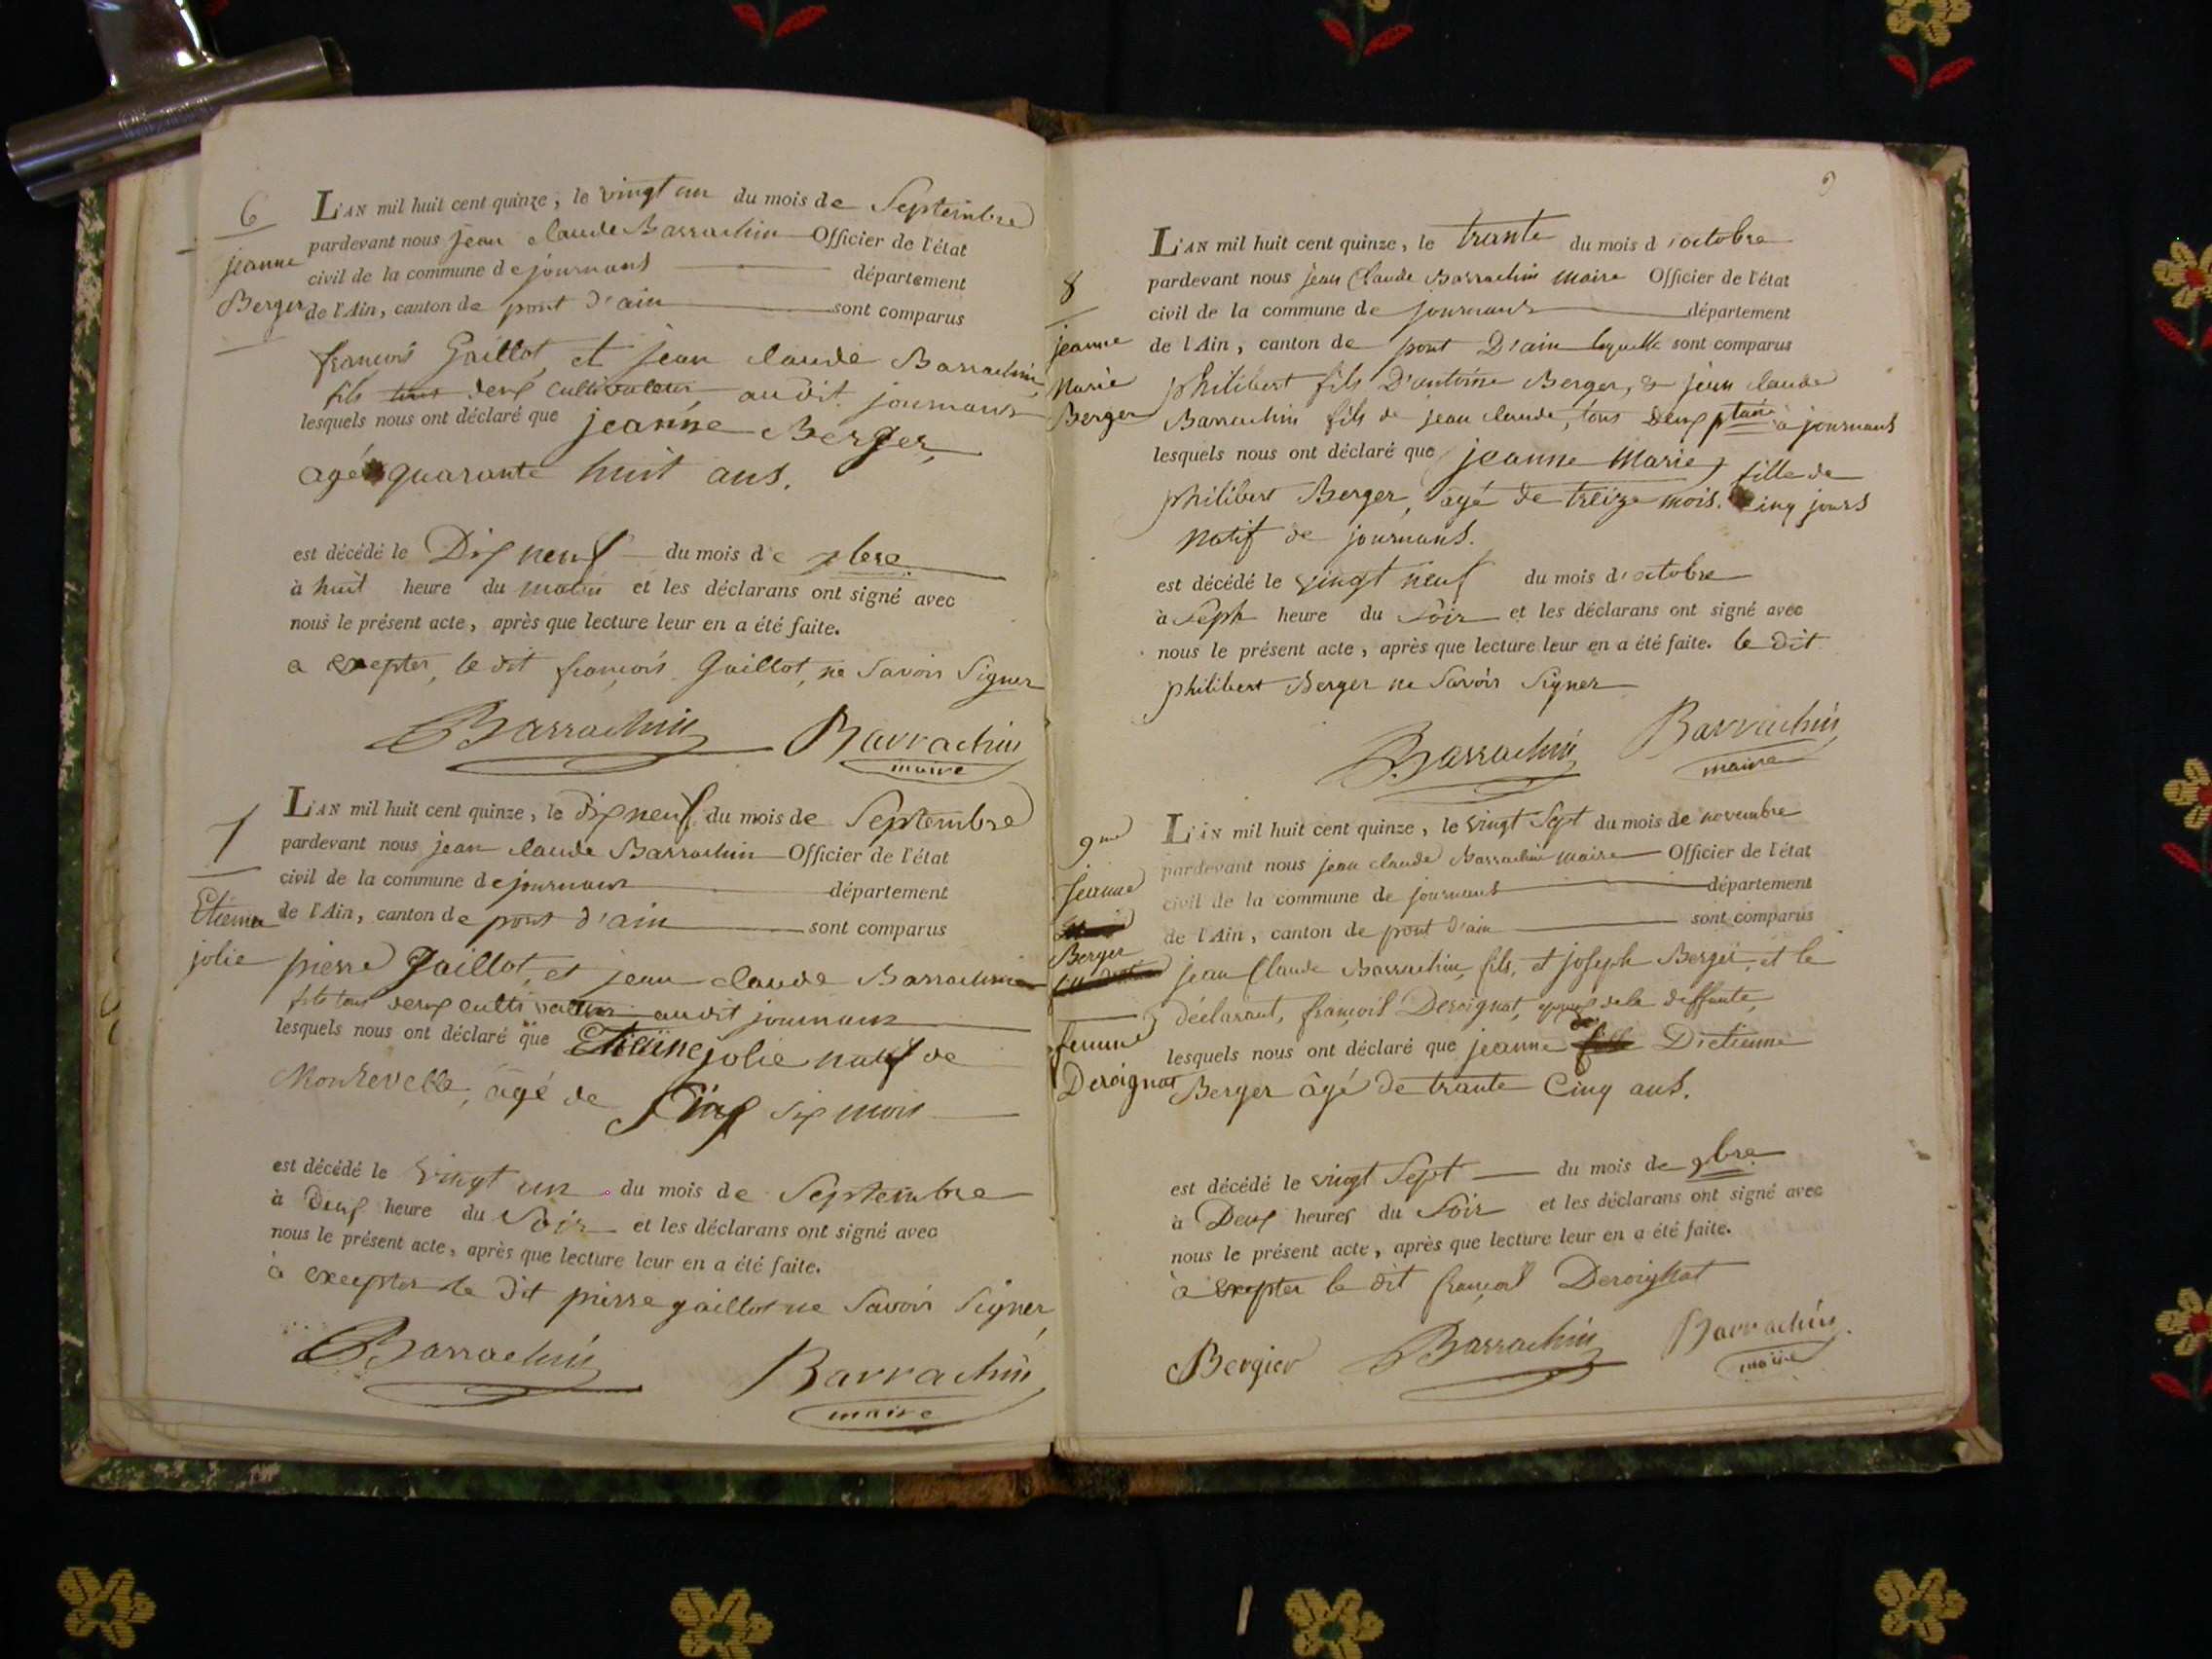 6
jeanne
Berger
L'AN mil huit cent quinze, le vingt un du mois de Septembre
pardevant nous jean claude Barrachin Officier de l'état
civil de la commune de journans département
de l'Ain, canton de pont d'ain sont comparus
françois Gaillot, et jean claude Barrachin,
fils tous deux cultivateur, audit journans
lesquels nous ont déclaré que jeanne Berger,
agé quarante huit ans.
est décédé le Dix neuf du mois de 7bre
à huit heure du matin et les déclarans ont signé avec
nous le présent acte, après que lecture leur en a été faite.
a exepter, le dit françois Gaillot, ne Savoir Signer
Barrachin Barrachin
maire
7
Etienne
jolie
L'AN mil huit cent quinze, le dix neuf du mois de Septembre
pardevant nous jean claude Barrachin Officier de l'état
civil de la commune de journans département
de l'Ain, canton de pont d'ain sont comparus
pierre Gaillot, et jean claude Barrachin
fils tous deux cultivateur audit journans
lesquels nous ont déclaré que Etienne jolie natif de
Montrevelle, âgé de six mois
est décédé le vingt un du mois de Septembre
à Deux heure du Soir et les déclarans ont signé avec
nous le présent acte, après que lecture leur en a été faite.
à excepter le dit pierre gaillot ne Savoir Signer
Barrachin Barrachin
maire
9
8
jeanne
Marie
Berger
L'AN mil huit cent quinze, le trante du mois d'octobre
pardevant nous jean Claude Barrachin maire Officier de l'état
civil de la commune de journans département
de l'Ain, canton de pont D'ain lequelle sont comparus
philibert fils D'antoine Berger, & jean claude
Barrachin fils de jean claude, tous Deux à journans
lesquels nous ont déclaré que jeanne Marie, fille de
philibert Berger, âgé de treize mois. Cinq jours
natif de journans.
est décédé le vingt neuf du mois d'octobre
à Seph heure du Soir et les déclarans ont signé avec
nous le présent acte, après que lecture leur en a été faite. le dit
philibert Berger ne Savoir Signer
Barrachin Barrachin
maire
9me
Jeanne
Berger
femme
Deroignat
L'AN mil huit cent quinze, le vingt Sept du mois de novembre
pardevant nous jean claude Barrachin maire Officier de l'état
civil de la commune de journans département
de l'Ain, canton de pont d'ain sont comparus
jean Claude Barrachin, fils, et joseph Berger, et le
déclarant, françois Deroignat, epoux de la deffunte,
lesquels nous ont déclaré que jeanne fille D'etienne
Berger âgé de trante Cinq ans.
est décédé le vingt Sept du mois de 9bre
à Deux heures du Soir et les déclarans ont signé avec
nous le présent acte, après que lecture leur en a été faite.
à exepter le dit françois Deroignat
Bergier Barrachin Barrachin
maire